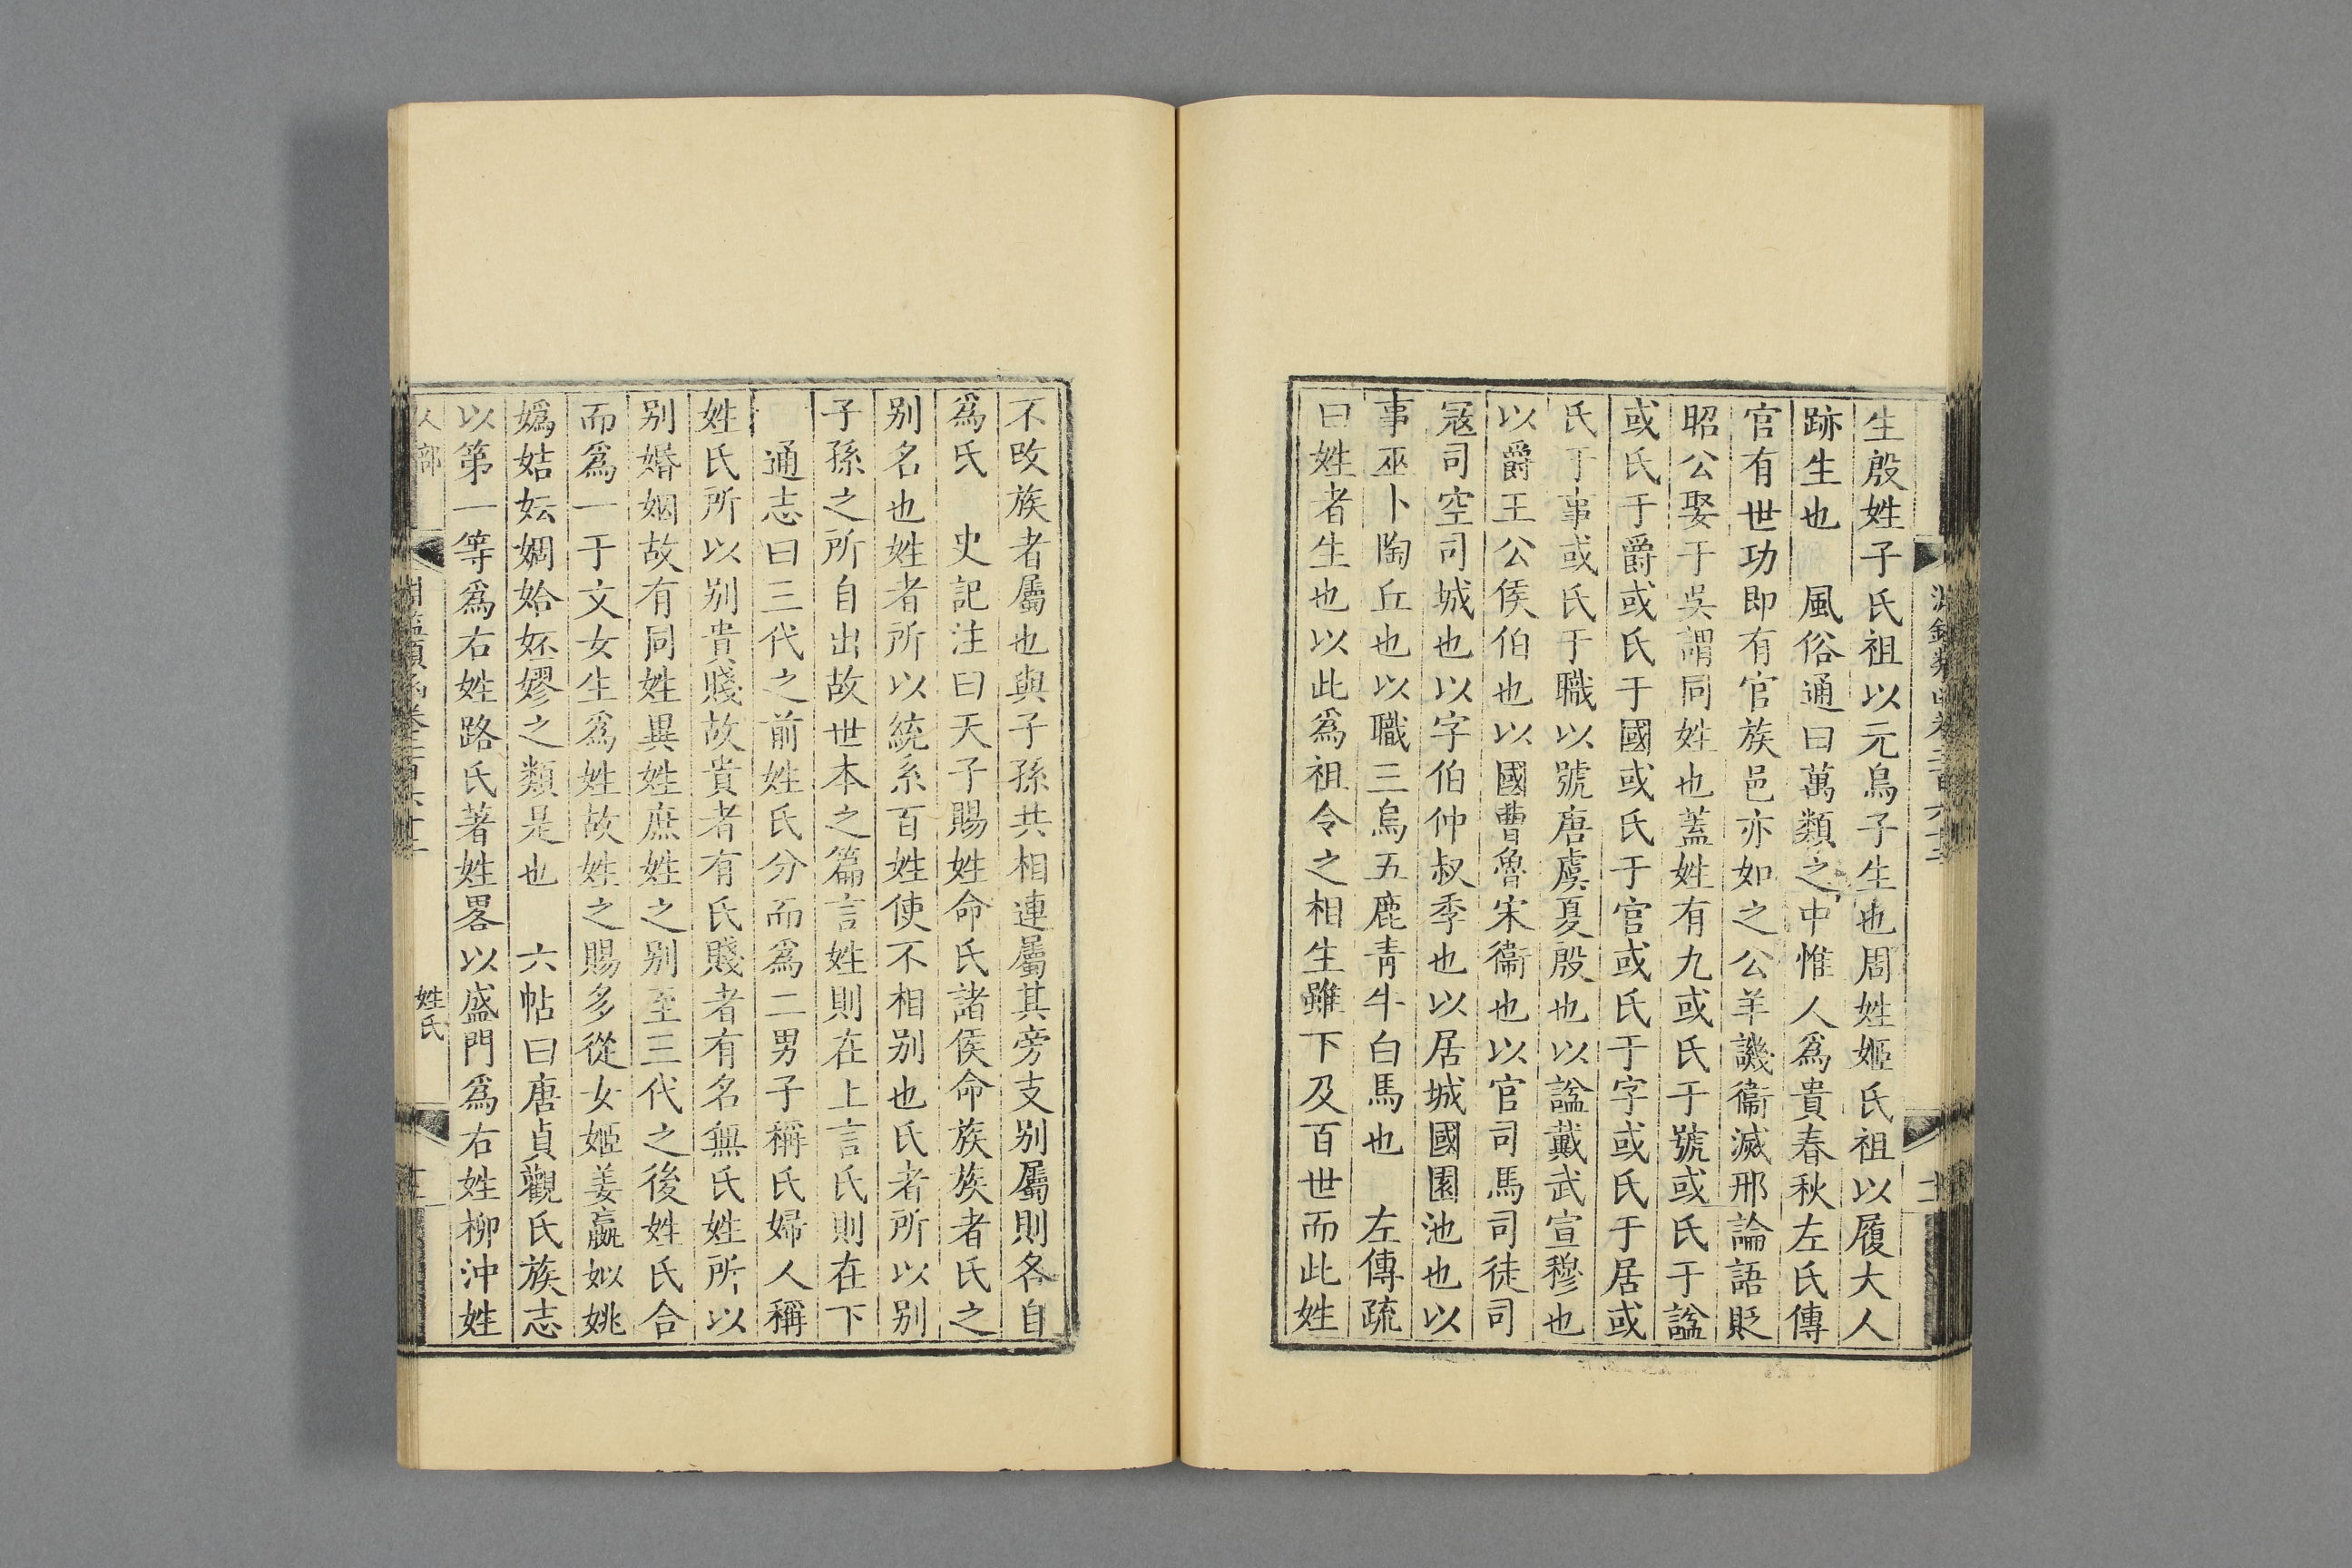 生殷姓子氏祖以元鳥子生也周姓姬氏祖以履大人
跡生也　風俗通曰萬類之中惟人爲貴春秋左氏傳
官有世功即有官族邑亦如之公羊譏衞滅邢論語貶
昭公娶于吳謂同姓也蓋姓有九或氏于號或氏于諡
或氏于爵或氏于國或氏于官或氏于字或氏于居或
氏于事或氏于職以號唐虞夏殷也以諡戴武宣穆也
以爵王公侯伯也以國曹魯宋衞也以官司馬司徒司
寇司空司城也以字伯仲叔季也以居城國園池也以
事巫卜陶丘也以職三烏五鹿青牛白馬也　左傳疏
曰姓者生也以此爲祖令之相生雖下及百世而此姓
不改族者屬也與子孫共相連屬其旁支别屬則各自
爲氏　史記注曰天子賜姓命氏諸侯命族族者氏之
别名也姓者所以統系百姓使不相别也氏者所以别
子孫之所自出故世本之篇言姓則在上言氏則在下
通志曰三代之前姓氏分而爲二男子稱氏婦人稱
姓氏所以别貴賤故貴者有氏賤者有名無氏姓所以
别婚姻故有同姓異姓庶姓之别至三代之後姓氏合
而爲一于文女生爲姓故姓之賜多從女姬姜嬴姒姚
嬀姞妘婤姶㚰嫪之類是也　六帖曰唐貞觀氏族志
以第一等爲右姓路氏著姓畧以盛門爲右姓柳沖姓
人部
姓氏